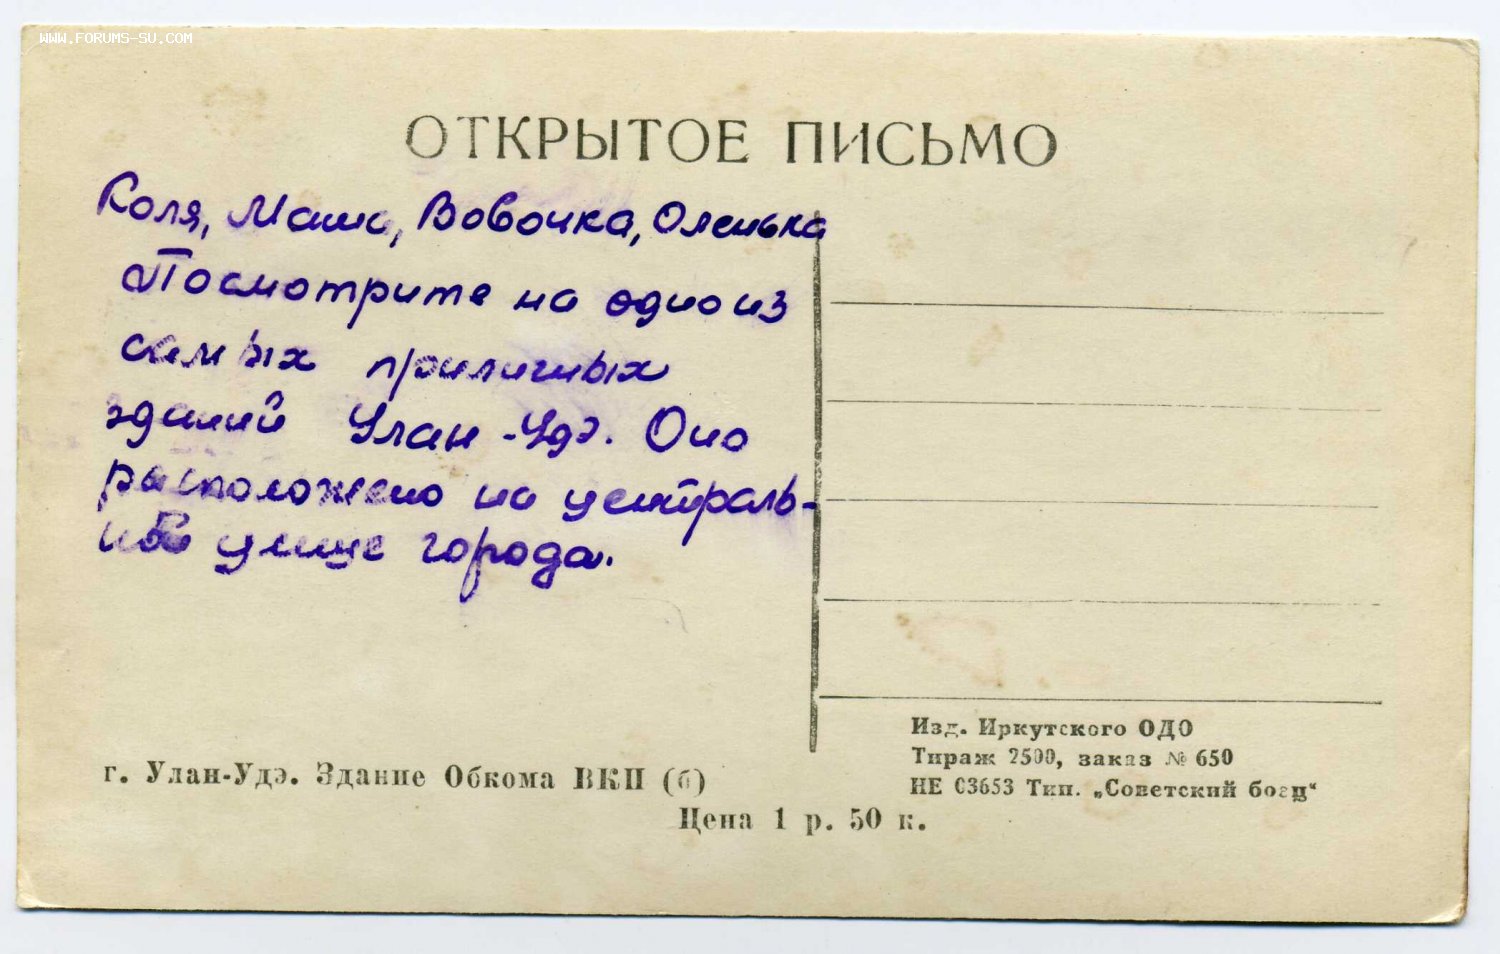 WWW.FORUMS-SU.COM
ОТКРЫТОЕ ПИСЬМО
Коля, Маша, Вовочка, Оленька
Посмотрите на одно из
самых приличных
зданий Улан-Удэ. Оно
расположено на централь-
ной улице города.
г. Улан-Удэ. Здание Обкома ВКП (б)
Цена 1 р. 50 к.
Изд. Иркутского ОДО
Тираж 2500, заказ № 650
НЕ 03653 Тип. „Советский боец“